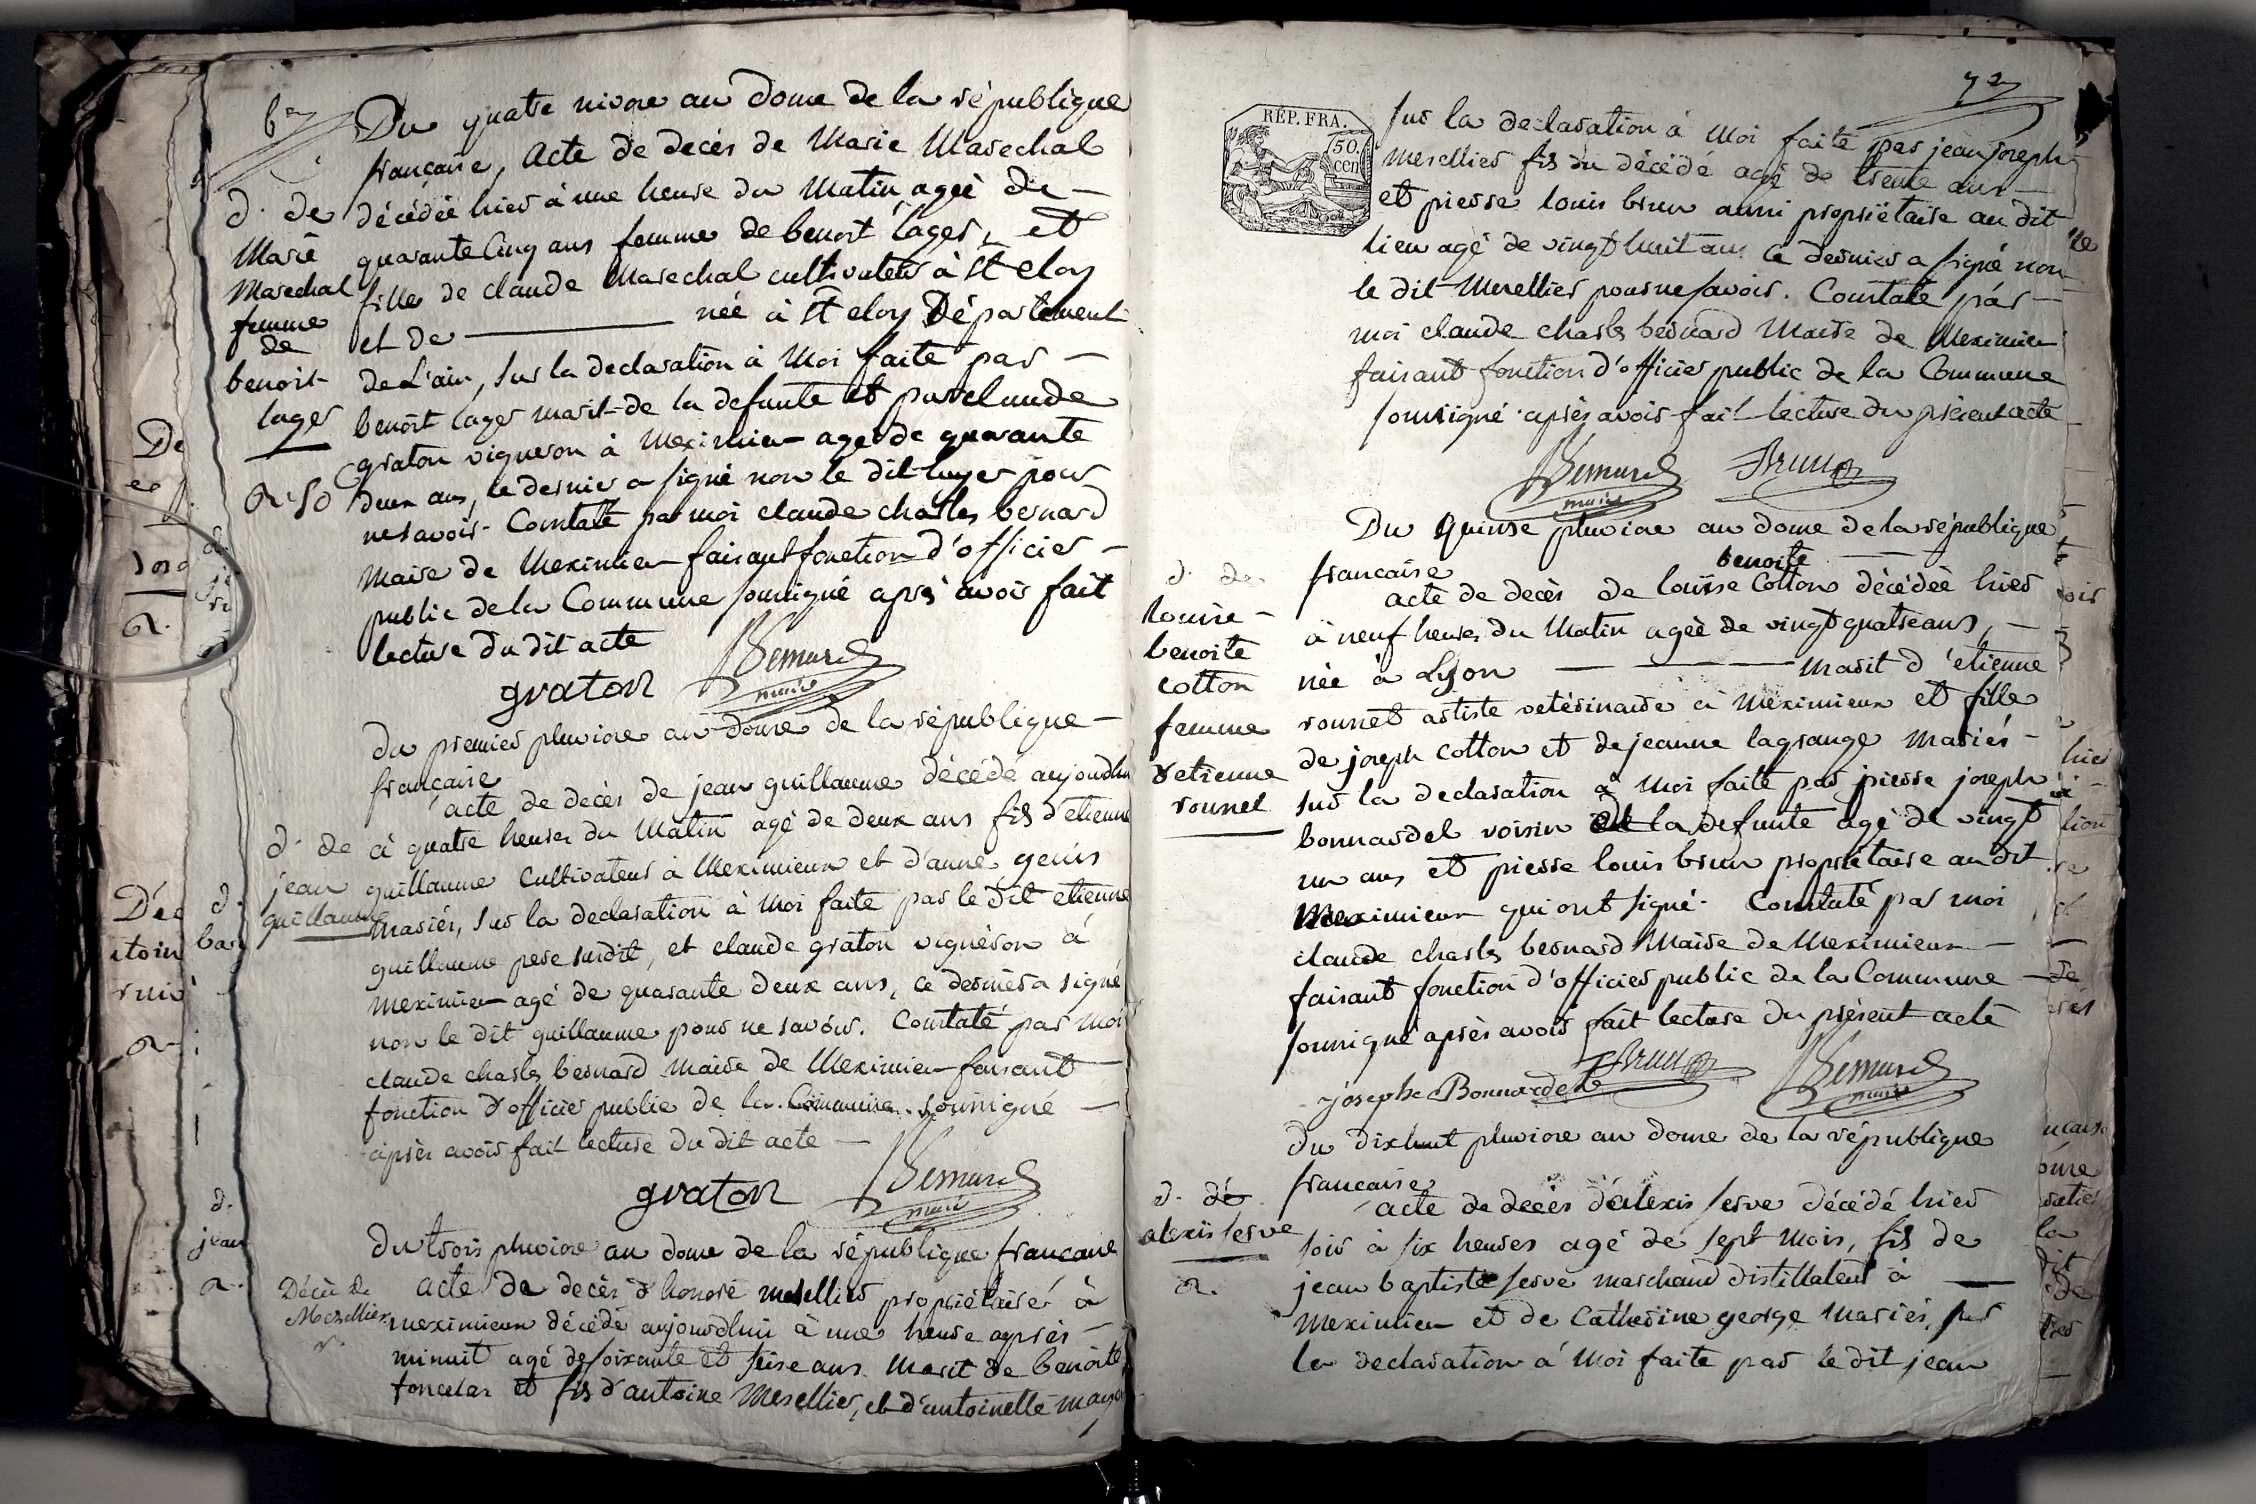 Du quatre nivose an Douse de la république
française, Acte de decès de Marie Marechal
d. de
Marie
Marechal
femme
de
benoit
lager
décédée hier à une heure du Matin agée de
quarante Cinq ans femme de benoit lager, et
fille de claude Marechal cultivateur à St eloy
et de née à St eloy Département
de L'ain, sur la declaration à Moi faite par
benoit lager marit de la defunte et par claude
graton vigneron à Meximieu agé de quarante
deux ans, ce dernier a signé non le dit lager pour
ne savoir. Constaté par moi claude charles bernard
Maire de Meximieu faisant fonction d'officier
public de la Commune soussigné après avoir fait
lecture du dit acte
graton Bernard
maire
du premier pluviose an douse de la république
française
acte de decès de jean guillaume décédé aujourdhui
d. de
jean
guillaume
à quatre heures du Matin agé de deux ans fils d'etienne
guillaume Cultivateur à Meximieux et d'anne
mariés, sur la declaration à Moi faite par le dit etienne
guillaume pere susdit, et claude graton vigneron à
meximieu agé de quarante deux ans, ce dernier a signé
non le dit guillaume pour ne savoir. Constaté par Moi
claude charles bernard Maire de Meximieu faisant
fonction d'officier public de la Commune soussigné
après avoir fait lecture du dit acte
graton Bernard
maire
Du trois pluviose an douse de la république francaise
Décès de
Merellier
acte de decès d'honoré merellier propriétaire à
meximieux décédé aujourdhui à une heure après
minuit agé de soixante et seise ans Marit de benoite
et fils d'antoine Merellier, et d'antoinette
72
RÉP. FRA.
50.
cen
sur la declaration à Moi faite par jean joseph
Merellier fils du décédé agé de trente ans
et pierre louis brun aussi propriétaire au dit
lieu agé de vingt huit ans ce dernier a signé non
le dit Merellier pour ne savoir. Constaté par
moi claude charles bernard Maire de Meximieu
faisant fonction d'officier public de la Commune
soussigné après avoir fait lecture du présent acte
Bernard Brun
maire
Du Quinse pluviose an douse de la république
francaise
benoite
acte de decès de louise Cotton décédée hier
d. de
louise
benoite
cotton
femme
d'etienne
rounet
à neuf heures du Matin agée de vingt quatre ans,
née à Lyon marit d'etienne
rounet artiste vetérinaire à Meximieux et fille
de joseph Cotton et de jeanne lagrange Mariés
sur la declaration à Moi faite par pierre joseph
bonnardel voisin de la defunte agé de vingt
un ans et pierre louis brun propriétaire au dit
Meximieux qui ont signé. Constaté par moi
claude charles bernard Maire de Meximieux
faisant fonction d'officier public de la Commune
soussigné après avoir fait lecture du présent acte
josephe Bonnardel Brun Bernard
maire
Du dixhuit pluviose an douse de la république
francaise
d. de
alexis serve
acte de decès d'alexis serve décédé hier
soir à six heures agé de sept mois, fils de
jean baptiste serve marchand distillateur à
Meximieu et de Catherine george Mariés, sur
la declaration à Moi faite par le dit jean